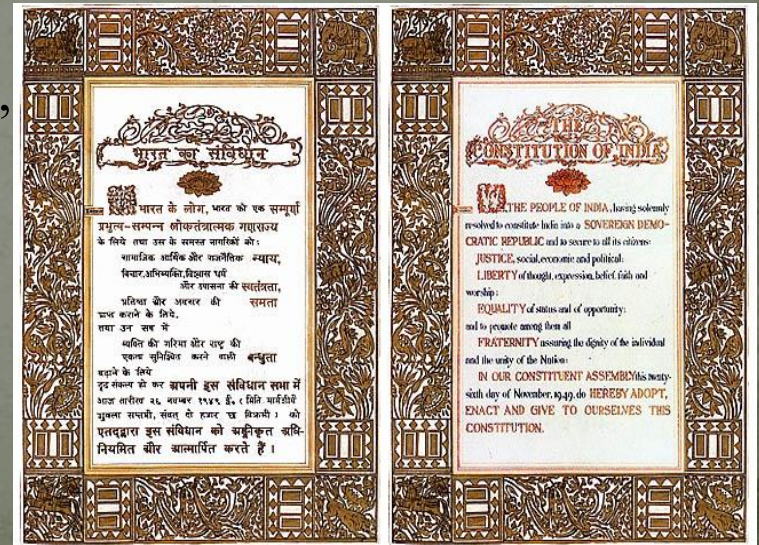 ,
भारत का संविधान
हम भारत के लोग, भारत को एक सम्पूर्ण
प्रभुत्व-सम्पन्न लोकतंत्रात्मक गणराज्य
के लिये तथा उस के समस्त नागरिकों को:
सामाजिक आर्थिक और राजनैतिक न्याय,
विचार,अभिव्यक्ति,विश्वास धर्म
और उपासना की स्वतंत्रता,
प्रतिष्ठा और अवसर की समता
प्राप्त कराने के लिये,
तथा उन सब में
व्यक्ति की गरिमा और राष्ट्र की
एकता सुनिश्चित करने वाली बन्धुता
बढ़ाने के लिये
दृढ़ संकल्प हो कर अपनी इस संविधान सभा में
आज तारीख २६ नवम्बर १९४९ ई, (मिति मार्गशीर्ष
शुक्ला सप्तमी, संवत् दो हजार छ विक्रमी) को
एतद्द्वारा इस संविधान को अङ्गीकृत अधि-
नियमित और आत्मार्पित करते हैं ।
THE
CONSTITUTION OF INDIA
WE, THE PEOPLE OF INDIA, having solemnly
resolved to constitute India into a SOVEREIGN DEMO-
CRATIC REPUBLIC and to secure to all its citizens:
JUSTICE, social, economic and political;
LIBERTY of thought, expression, belief, faith and
worship;
EQUALITY of status and of opportunity;
and to promote among them all
FRATERNITY assuring the dignity of the individual
and the unity of the Nation;
IN OUR CONSTITUENT ASSEMBLY this twenty-
sixth day of November, 1949, do HEREBY ADOPT,
ENACT AND GIVE TO OURSELVES THIS
CONSTITUTION.